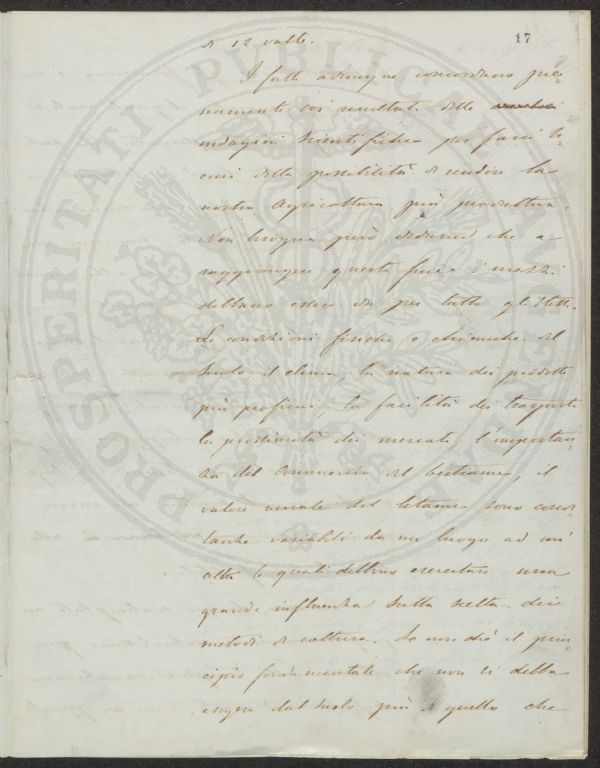 17
di 12 volte.
I fatti adunque concordano pie-
namente coi resultati delle
indagini scientifiche per farci si-
curi della possibilità di rendere la
nostra Agricoltura più produttiva.
Non bisogna però dedurne che a
raggiungere questo fine i mezzi
debbano esser da per tutto gli stessi.
Le condizioni fisiche e chimiche del
suolo, il clima, la natura dei prodotti
più proficui, la facilità dei trasporti
la prossimità dei mercati, l'importan-
za del commercio del bestiame, il
valore venale del letame sono circo-
stanze variabili da un luogo ad un'
altro le quali debbono esercitare una
grande influenza sulla scelta dei
metodi di coltura. Se non che il prin-
cipio fondamentale che non si debba
esigere dal suolo più di quello che
PROSPERITATI PUBLICAE AUGENDAE